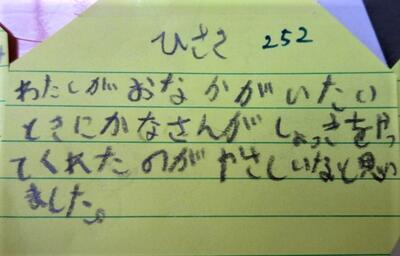 ひさき 252
わたしがおなかがいたい
ときにかなさんがしょっきをやっ
てくれたのがやさしいなと思い
ました。